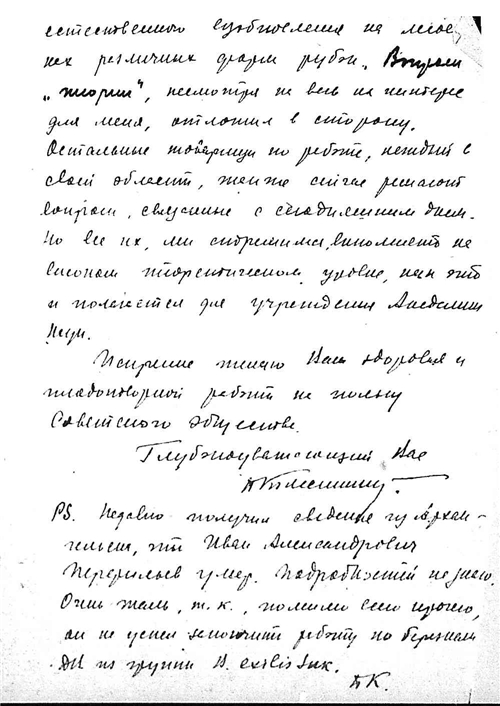 естественного возобновления на лесосе-
ках различных форм рубок. Вопросы
„теории", несмотря на весь их интерес
для меня, отложил в сторону.
Остальные товарищи по работе, каждый в
своей области, также сейчас решают
вопросы, связанные с сегодняшним днем.
Но все их, мы стремимся, выполнять на
высоком теоретическом уровне, как это
и полагается для учреждения Академии
Наук.
Искренне желаю Вам здоровья и
плодотворной работы на пользу
Советского общества.
Глубокоуважающий Вас
PS. Недавно получил сведение из Архан-
гельска, что Иван Александрович
Перфильев умер. Подробностей не знаю.
Очень жаль, т.к., помимо всего прочего,
он не успел закончить работу по березкам
из группы B. exilis Suk.